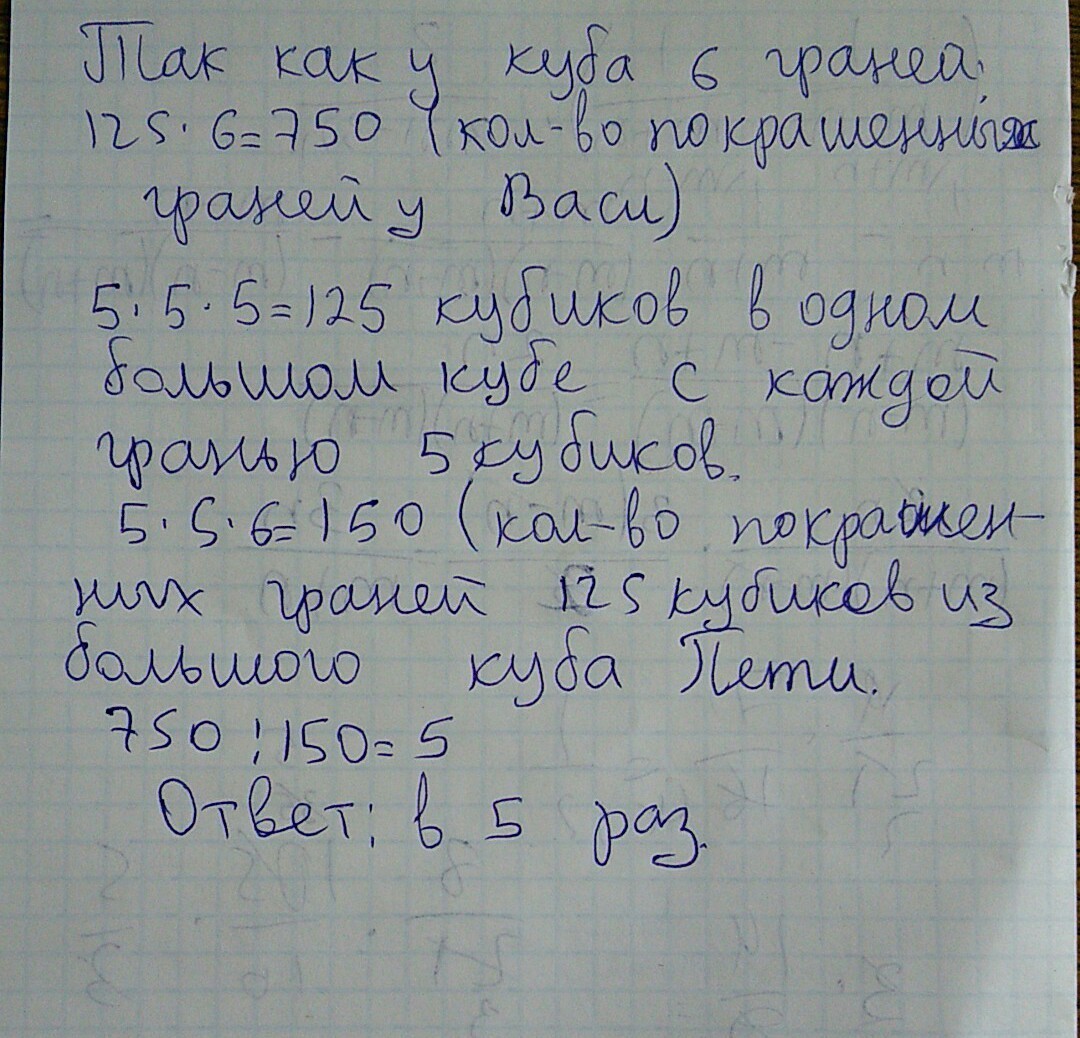 Так как у куба 6 граней.
125·6=750 (кол-во покрашенных
граней у Васи)
5·5·5=125 кубиков в одном
большом кубе с каждой
гранью 5 кубиков.
5·5·6=150 (кол-во покрашен-
ных граней 125 кубиков из
большого куба Пети.
750:150=5
Ответ: в 5 раз.